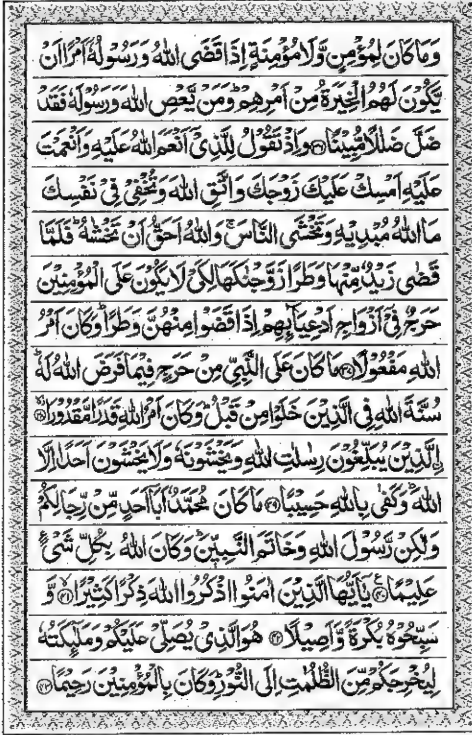 وَمَا كَانَ لِمُؤْمِنٍ وَّلَا مُؤْمِنَةٍ اِذَا قَضَى اللّٰهُ وَرَسُوْلُهٗۤ اَمْرًا اَنْ
يَّكُوْنَ لَهُمُ الْخِيَرَةُ مِنْ اَمْرِهِمْ ؕ وَمَنْ يَّعْصِ اللّٰهَ وَرَسُوْلَهٗ فَقَدْ
ضَلَّ ضَلٰلًا مُّبِيْنًا ۝۳۶ وَاِذْ تَقُوْلُ لِلَّذِيْۤ اَنْعَمَ اللّٰهُ عَلَيْهِ وَاَنْعَمْتَ
عَلَيْهِ اَمْسِكْ عَلَيْكَ زَوْجَكَ وَاتَّقِ اللّٰهَ وَتُخْفِيْ فِيْ نَفْسِكَ
مَا اللّٰهُ مُبْدِيْهِ وَتَخْشَى النَّاسَ ۚ وَاللّٰهُ اَحَقُّ اَنْ تَخْشٰىهُ ؕ فَلَمَّا
قَضٰى زَيْدٌ مِّنْهَا وَطَرًا زَوَّجْنٰكَهَا لِكَيْ لَا يَكُوْنَ عَلَى الْمُؤْمِنِيْنَ
حَرَجٌ فِيْۤ اَزْوَاجِ اَدْعِيَآىِٕهِمْ اِذَا قَضَوْا مِنْهُنَّ وَطَرًا ؕ وَكَانَ اَمْرُ
اللّٰهِ مَفْعُوْلًا ۝۳۷ مَا كَانَ عَلَى النَّبِيِّ مِنْ حَرَجٍ فِيْمَا فَرَضَ اللّٰهُ لَهٗ ؕ
سُنَّةَ اللّٰهِ فِي الَّذِيْنَ خَلَوْا مِنْ قَبْلُ ؕ وَكَانَ اَمْرُ اللّٰهِ قَدَرًا مَّقْدُوْرَا ۝۳۸
اِلَّذِيْنَ يُبَلِّغُوْنَ رِسٰلٰتِ اللّٰهِ وَيَخْشَوْنَهٗ وَلَا يَخْشَوْنَ اَحَدًا اِلَّا
اللّٰهَ ؕ وَكَفٰى بِاللّٰهِ حَسِيْبًا ۝۳۹ مَا كَانَ مُحَمَّدٌ اَبَاۤ اَحَدٍ مِّنْ رِّجَالِكُمْ
وَلٰكِنْ رَّسُوْلَ اللّٰهِ وَخَاتَمَ النَّبِيّٖنَ ؕ وَكَانَ اللّٰهُ بِكُلِّ شَيْءٍ
عَلِيْمًا ۝۴۰ يٰۤاَيُّهَا الَّذِيْنَ اٰمَنُوا اذْكُرُوا اللّٰهَ ذِكْرًا كَثِيْرًا ۝۴۱ وَّ
سَبِّحُوْهُ بُكْرَةً وَّاَصِيْلًا ۝۴۲ هُوَ الَّذِيْ يُصَلِّيْ عَلَيْكُمْ وَمَلٰٓىِٕكَتُهٗ
لِيُخْرِجَكُمْ مِّنَ الظُّلُمٰتِ اِلَى النُّوْرِ ؕ وَكَانَ بِالْمُؤْمِنِيْنَ رَحِيْمًا ۝۴۳